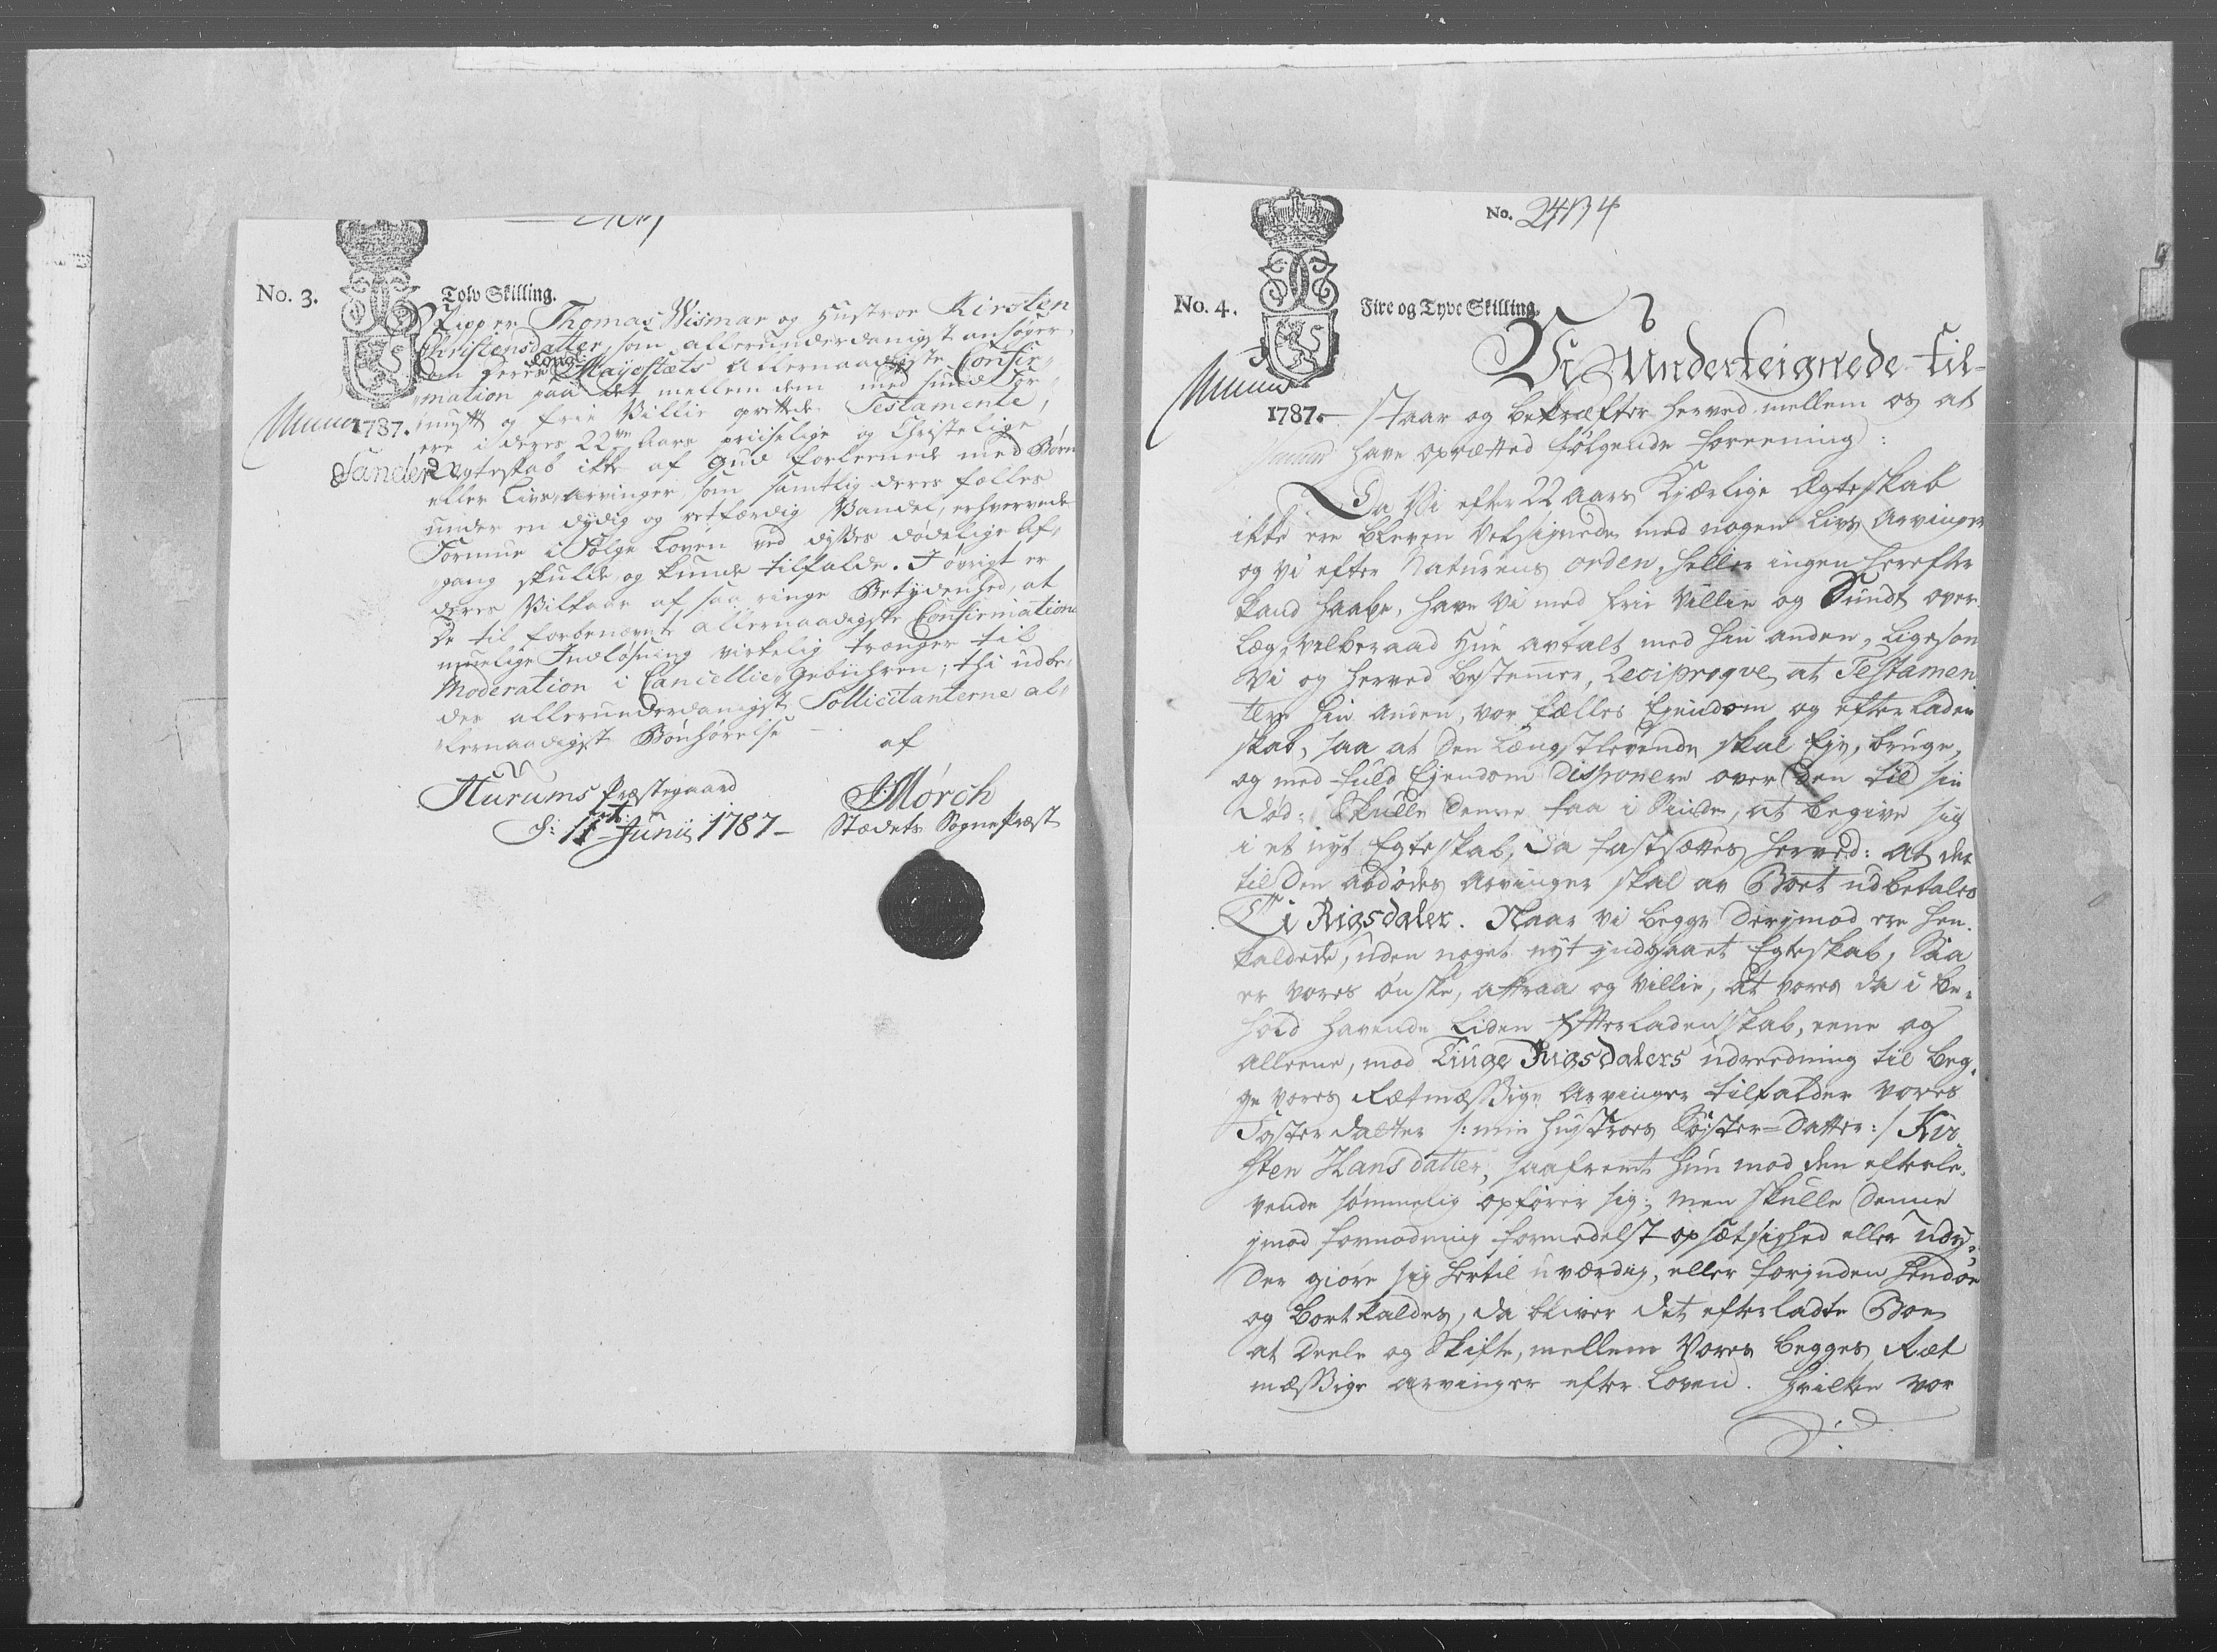 No. 3.
Tolv Skilling.
Skipper Thomas Wismar og Hustroe Kirsten
Christensdatter, som allerunderdanigst ansøger
om Deres Kongl: Mayestæts Allernaadigste Confir-
mation paa det mellem dem med sund For-
nuft og frie Villie oprettede Testamente,
1787.
ere i deres 22de Aars priiselige og Christelige
Ægteskab ikke af Gud forleenede med Børn
eller Livs-Arvinger, som samtlig deres fælles
under en dydig og retfærdig Vandel, erhvervede
Formue i Følge Loven ved dysses dødelige Af-
gang skulle og kunde tilfalde. I øvrigt er
deres Vilkaar af saa ringe Betydenhed, at
De til forbenævnte allernaadigste Confirmations
muelige Indløsning virkelig trænger til
Moderation i Cancellie-Gebühren; thi udbe-
der allerunderdanigst Sollicitanterne al-
lernaadigst Bønhørelse
af
Hurums Præstegaard
d: 11te Junii 1787 –
Mørch
Stædets Sognepræst
No. 2434
No. 4.
Fire og Tyve Skilling.
Vi Underteignede til-
1787.
staar og bekræfter herved mellem os at
have oprætted følgende foreening:
Da Vi efter 22 Aars Kjærlige Ægteskab
ikke ere bleven Velsignede med nogen Livs Arvinger
og vi efter Naturens orden, heller ingen herefter
kand haabe, have Vi med frie Villie og Sundt over-
læg, velberaad Hue avtalt med hin anden, ligesom
Vi og herved bestemmer, Reciproqve, at Testamen-
tere hin Anden, vor fælles Ejendom og efterladen
skab, saa at Den Længstlevende skal Eje, bruge,
og med fuld Ejendom Disponere over Den til sin
Død: Skulle Denne faa i Sinde, at begive sig
i et nyt Egteskab, Da fastsættes herved: at der
til Den avdødes Arvinger skal av Boet udbetales
Ti Rigsdaler. Naar vi begge Derjmod ere hen-
kaldede, uden noget nyt jndgaaet Egteskab, Saa
er vores ønske, attraa og Villie, at vores da i be-
hold havende Liden Efterladenskab, eene og
alleene, mod Tiuge Rigsdalers udreedning til beg-
ge vores Rætmæssige Arvinger tilfalder vores
Foster datter /: min Hustroes Søster-Datter :/ Kir
sten Hansdatter, saafremt hun mod den efterle-
vende sømmelig opfører sig; men skulle Denne
jmod formodning formedelst opsætsighed eller udy-
der giøre sig hertil uværdig, eller forjnden hendøe
og bortkaldes, da bliver det efterladte Boe
at Deele og Skifte, mellem Vores begges Ræt
mæssige arvinger efter Loven. Hvilken vor